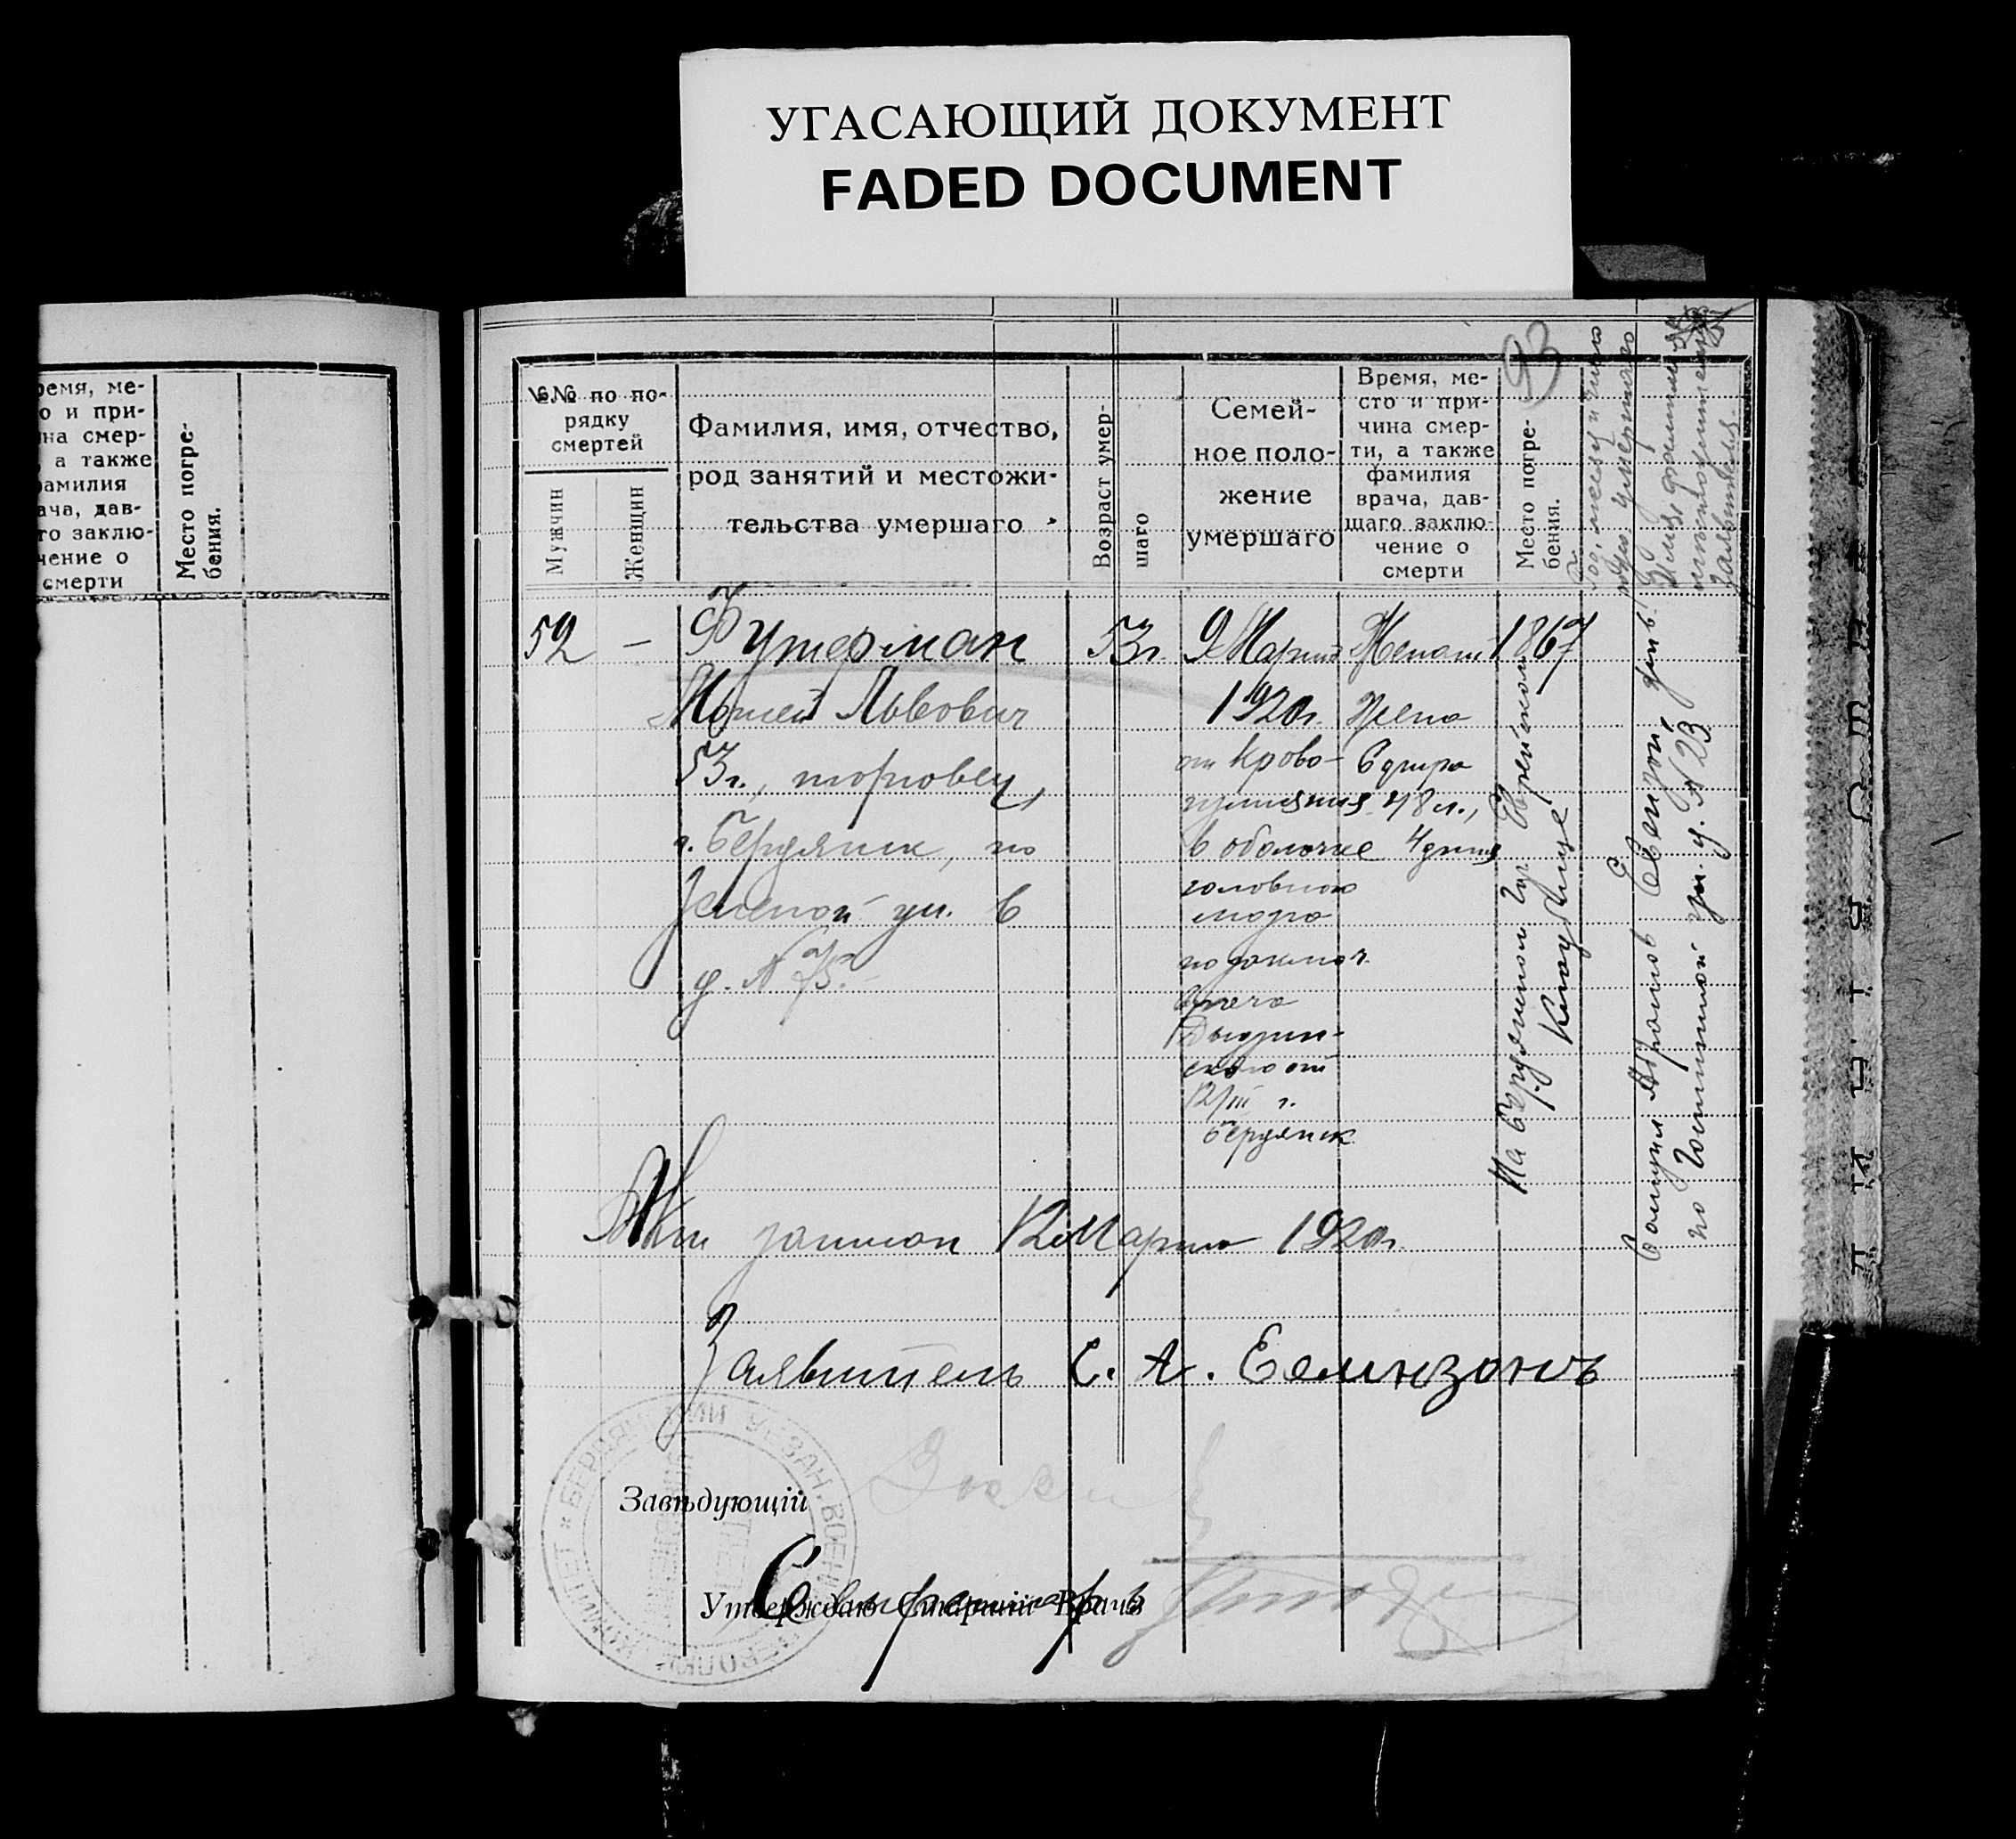 УГАСАЮЩИЙ ДОКУМЕНТ
FADED DOCUMENT
ремя, ме-
о и при-
на смер-
а также
амилия
ача, дав-
го заклю-
чение о
смерти
Место погре-
бения.
№№ по по-
рядку
смертей
Мужчин
Женщин
Фамилия, имя, отчество,
род занятий и местожи-
тельства умершаго
Возраст умер-
шаго
Семей-
ное поло-
жение
умершаго
Время, ме-
сто и при-
чина смер-
ти, а также
фамилия
врача, дав-
шаго заклю-
чение о
смерти
93
Место погре-
бения.
Год, месяц и число
рожд. умершаго
заявителя.
52 —
Футерман
Мошей Львович
53 г., торговец,
г. Бердянск, по
Зеленой ул. в
д. №
53 г.
9 Марта
1920 г.
от крово-
излияния
в оболочке
головного
мозга
по заключ.
врача
от
12/III г.
Бердянск
Женат
жена
48 л.,
1867
На Бердянском гор. Еврейском
Кладбище
Самуил Аронов
по Гостинной ул. д. № 23
Акт записан 12 Марта 1920 г.
Заявитель С. А. Еелинзонъ
Завѣдующій
Утверждаю Старшій Врачъ